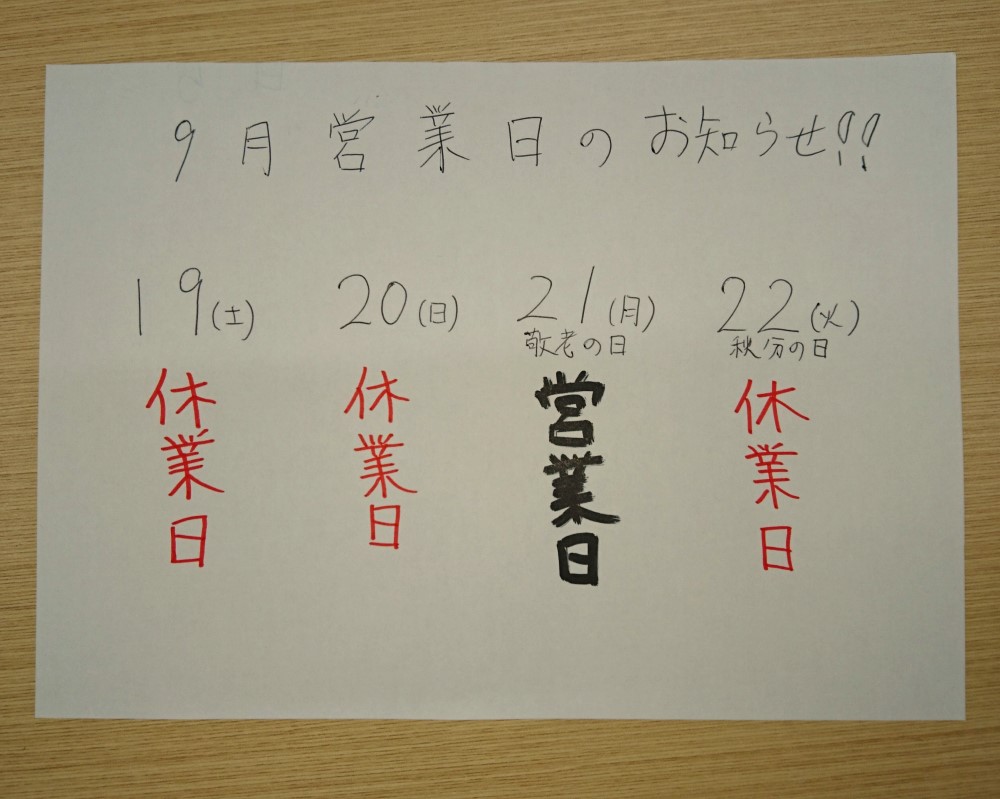 9月営業日のお知らせ!!
19(土) 20(日) 21(月) 22(火)
敬老の日 秋分の日
休業日 休業日 営業日 休業日